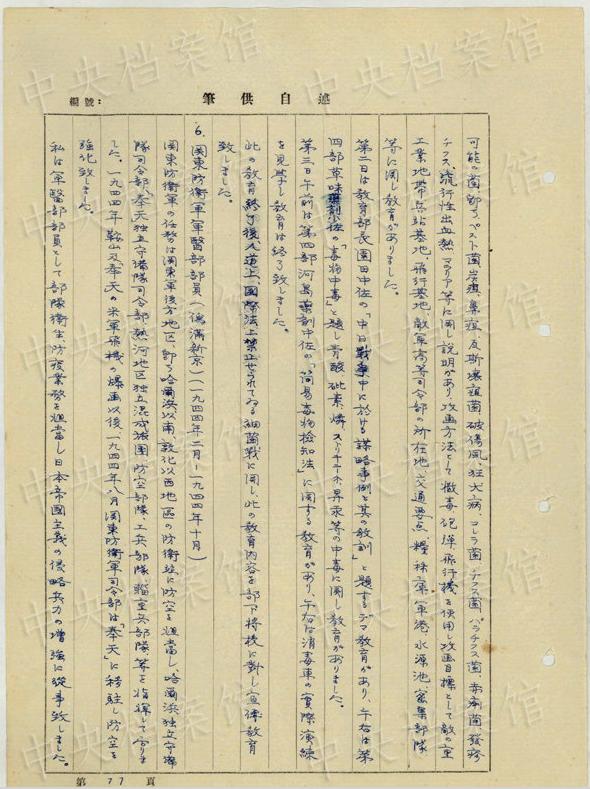 中央档案馆
中央档案馆
編號:
筆供自述
可能の菌、即ち、ペスト菌、炭疽、鼻疽、瓦斯壊疽菌、破傷風、狂犬病、コレラ菌、チフス菌、パラチフス菌、赤痢菌、發疹
チフス、流行性出血熱、マラリア等に関し説明があり、攻撃方法として撒毒、砲弾、飛行機を使用し攻撃目標として敵の軍
工業地帯、兵站基地、飛行基地、敵軍高等司令部の所在地、交通要点、糧秣庫、軍港、水源池、密集部隊
等に関し教育がありました。
第二日は教育部長園田中佐の「中日戦争中に於ける謀略事例と其の教訓」と題するデマ教育があり、午右は第
四部草味 少佐の「毒物中毒」と題し青酸、砒素、燐、ストリキニーネ、昇汞等の中毒に関し教育がありました。
第三日午前は第四部河島藥剤中佐の「簡易毒物検知法」に関する教育があり、午右は消毒車の實際演練
を見学し教育は終了致しました。
此の教育終了後人道上、國際法上禁止せられてゐる細菌戦に関し、此の教育内容を部下将校に對し宣傳教育
致しました。
6. 関東防衛軍軍醫部部員(偽滿新京)(一九四四年二月－一九四四年十月)
関東防衛軍の任務は関東軍後方地区、即ち哈爾浜以南、敦化以西地區の防衛並に防空を担當し、哈爾浜独立守備
隊司令部、奉天独立守備隊司令部、熱河地区独立混成旅團、防空部隊、工兵部隊、輜重兵部隊、等を指揮して居りま
した。一九四四年鞍山及「奉天」の米軍飛機の爆撃以後、一九四四年八月関東防衛軍司令部は「奉天」に移駐し防空を
強化致しました。
私は軍醫部部員として部隊衛生、防疫業務を担當し日本帝國主義の侵略兵力の増強に從事致しました。
第 77 頁